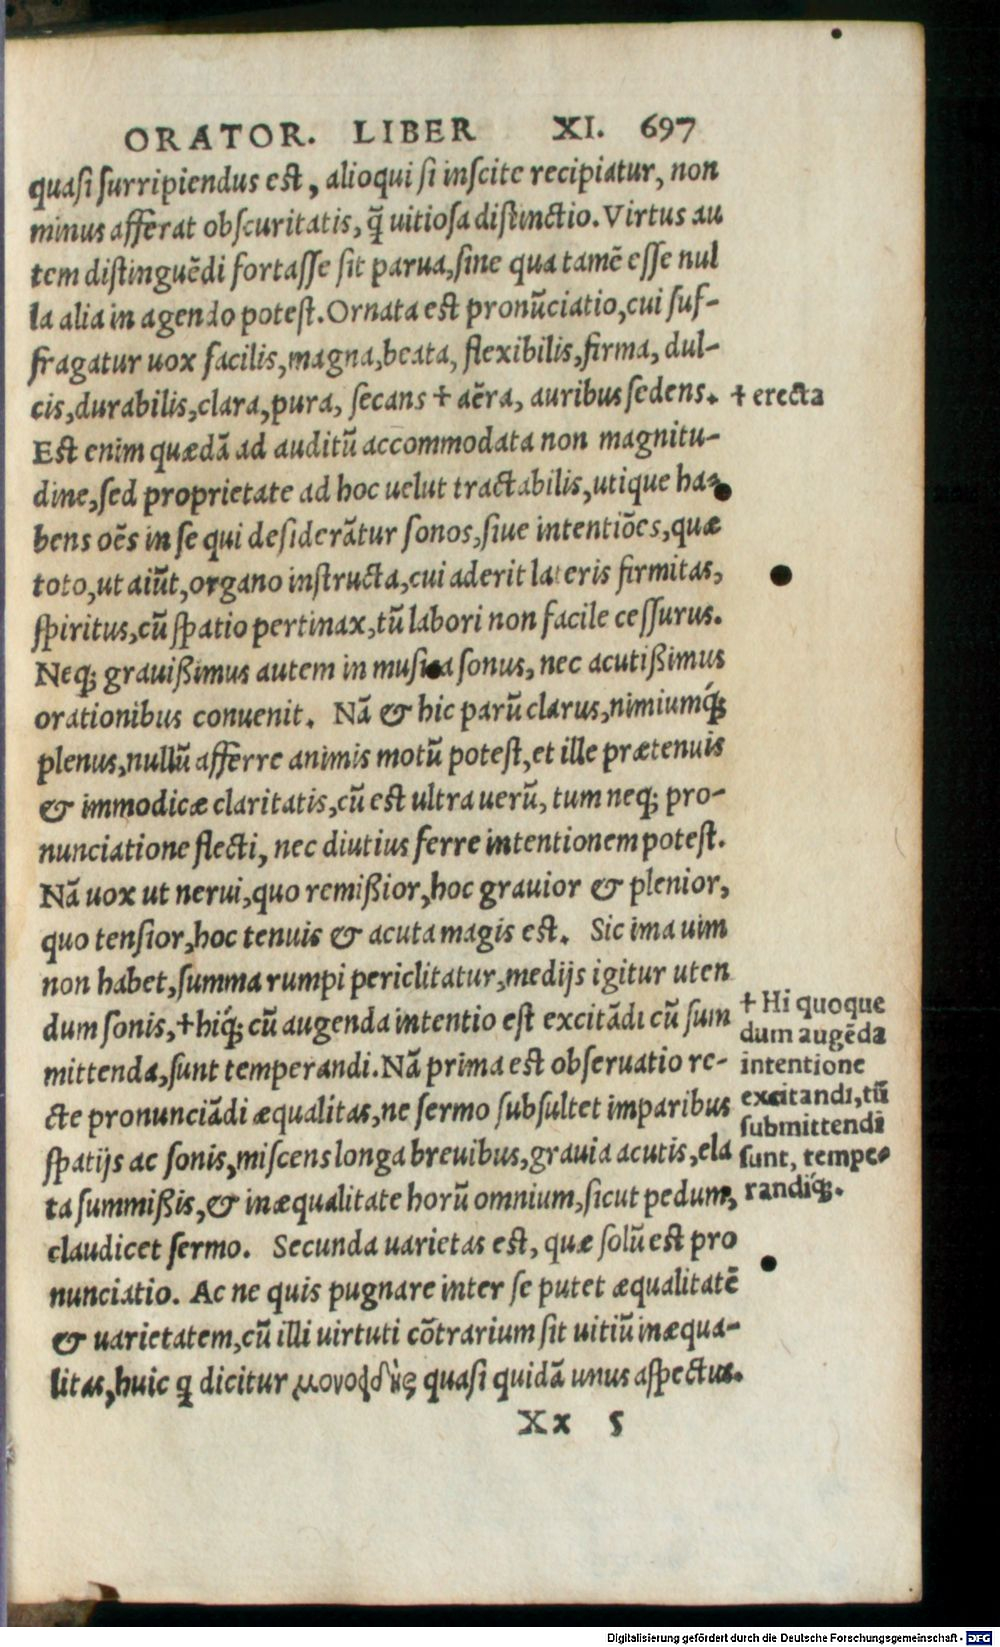 ORATOR. LIBER XI. 697
quasi surripiendus est, alioqui si inscite recipiatur, non
minus afferat obscuritatis, q̃ uitiosa distinctio. Virtus au
tem distinguẽdi fortasse sit parua, sine qua tamẽ esse nul
la alia in agendo potest. Ornata est pronũciatio, cui suf-
fragatur uox facilis, magna, beata, flexibilis, firma, dul-
cis, durabilis, clara, pura, secans † aẽra, auribus sedens. † erecta
Est enim quædã ad auditũ accommodata non magnitu-
dine, sed proprietate ad hoc uelut tractabilis, utique ha-
bens oẽs in se qui desiderãtur sonos, siue intentiões, quæ
toto, ut aiũt, organo instructa, cui aderit lateris firmitas,
spiritus, cũ spatio pertinax, tũ labori non facile cessurus.
Neq; grauißimus autem in musica sonus, nec acutißimus
orationibus conuenit. Nã & hic parũ clarus, nimiumq́;
plenus, nullũ afferre animis motũ potest, et ille prætenuis
& immodicæ claritatis, cũ est ultra uerũ, tum neq; pro-
nunciatione flecti, nec diutius ferre intentionem potest.
Nã uox ut nerui, quo remißior, hoc grauior & plenior,
quo tensior, hoc tenuis & acuta magis est. Sic ima uim
non habet, summa rumpi periclitatur, medijs igitur uten
dum sonis, † hiq́; cũ augenda intentio est excitãdi cũ sum
mittenda, sunt temperandi. Nã prima est obseruatio re-
cte pronunciãdi æqualitas, ne sermo subsultet imparibus
spatijs ac sonis, miscens longa breuibus, grauia acutis, ela
ta summißis, & inæqualitate horũ omnium, sicut pedum,
claudicet sermo. Secunda uarietas est, quæ solũ est pro
nunciatio. Ac ne quis pugnare inter se putet æqualitatẽ
& uarietatem, cũ illi uirtuti cõtrarium sit uitiũ inæqua-
litas, huic q dicitur μονοειδὴς quasi quidã unus aspectus.
† Hi quoque
dum augẽda
intentione
excitandi, tũ
submittendi
sunt, tempe-
randiq́;.
Xx 5
Digitalisierung gefördert durch die Deutsche Forschungsgemeinschaft - DFG